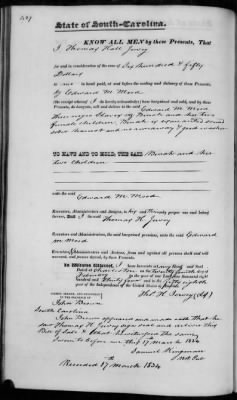 State of South-Carolina.
KNOW ALL MEN by these Presents, That
I Thomas Hall Jervey
for and in consideration of the sum of Six hundred & fifty
Dollars
to me in hand paid, at and before the sealing and delivery of these Presents,
by Edward M. Mood
(the receipt whereof I do hereby acknowledge) have bargained and sold, and by these
Presents, do bargain, sell and deliver to the said Edward M. Mood
Three negro Slaves and her two
female children
who and not a runaway & good washer
TO HAVE AND TO HOLD, THE SAID and her
two children
unto the said
Edward M Mood
Executors, Administrators and Assigns, to and their only proper use and behoof,
forever, And I the said Thomas H. Jervey
Executors and Administrators, the said bargained premises, unto the said Edward
M Mood
Executors, Administrators and Assigns, from and against all persons shall and will
warrant, and forever defend by these Presents.
In Witness Whereof, I have hereunto set my Hand and Seal
Dated at Charleston on the Twenty fourth day of
February in the year of our Lord one thousand eight
hundred and thirty four and in the fifty eighth
year of the Independence of the United States of America.
Tho. H. Jervey (LS)
SIGNED, SEALED, AND DELIVERED
IN THE PRESENCE OF
John
South Carolina
John appeared and made oath that he
saw Thomas H. Jervey sign seal and deliver this
Bill of Sale & that he witnessed the same
Sworn to before me this 17 March 1834
Samuel
Recorded 17th March 1834